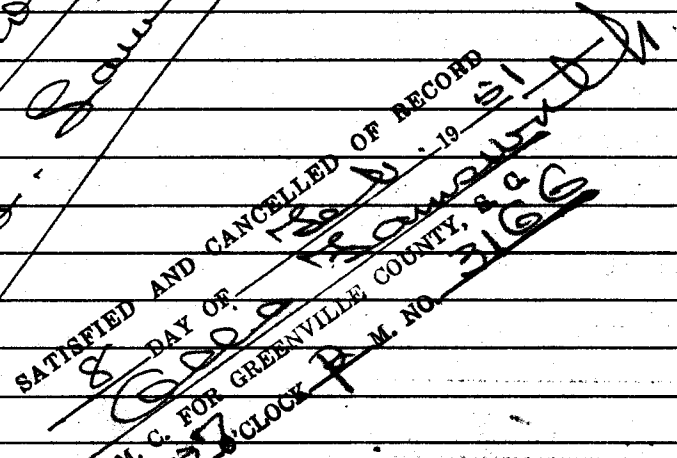 SATISFIED AND CANCELLED OF RECORD
8 DAY OF Feb. 1951
Ollie Farnsworth
M. C. FOR GREENVILLE COUNTY, S. C.
O'CLOCK P. M. NO. 3166